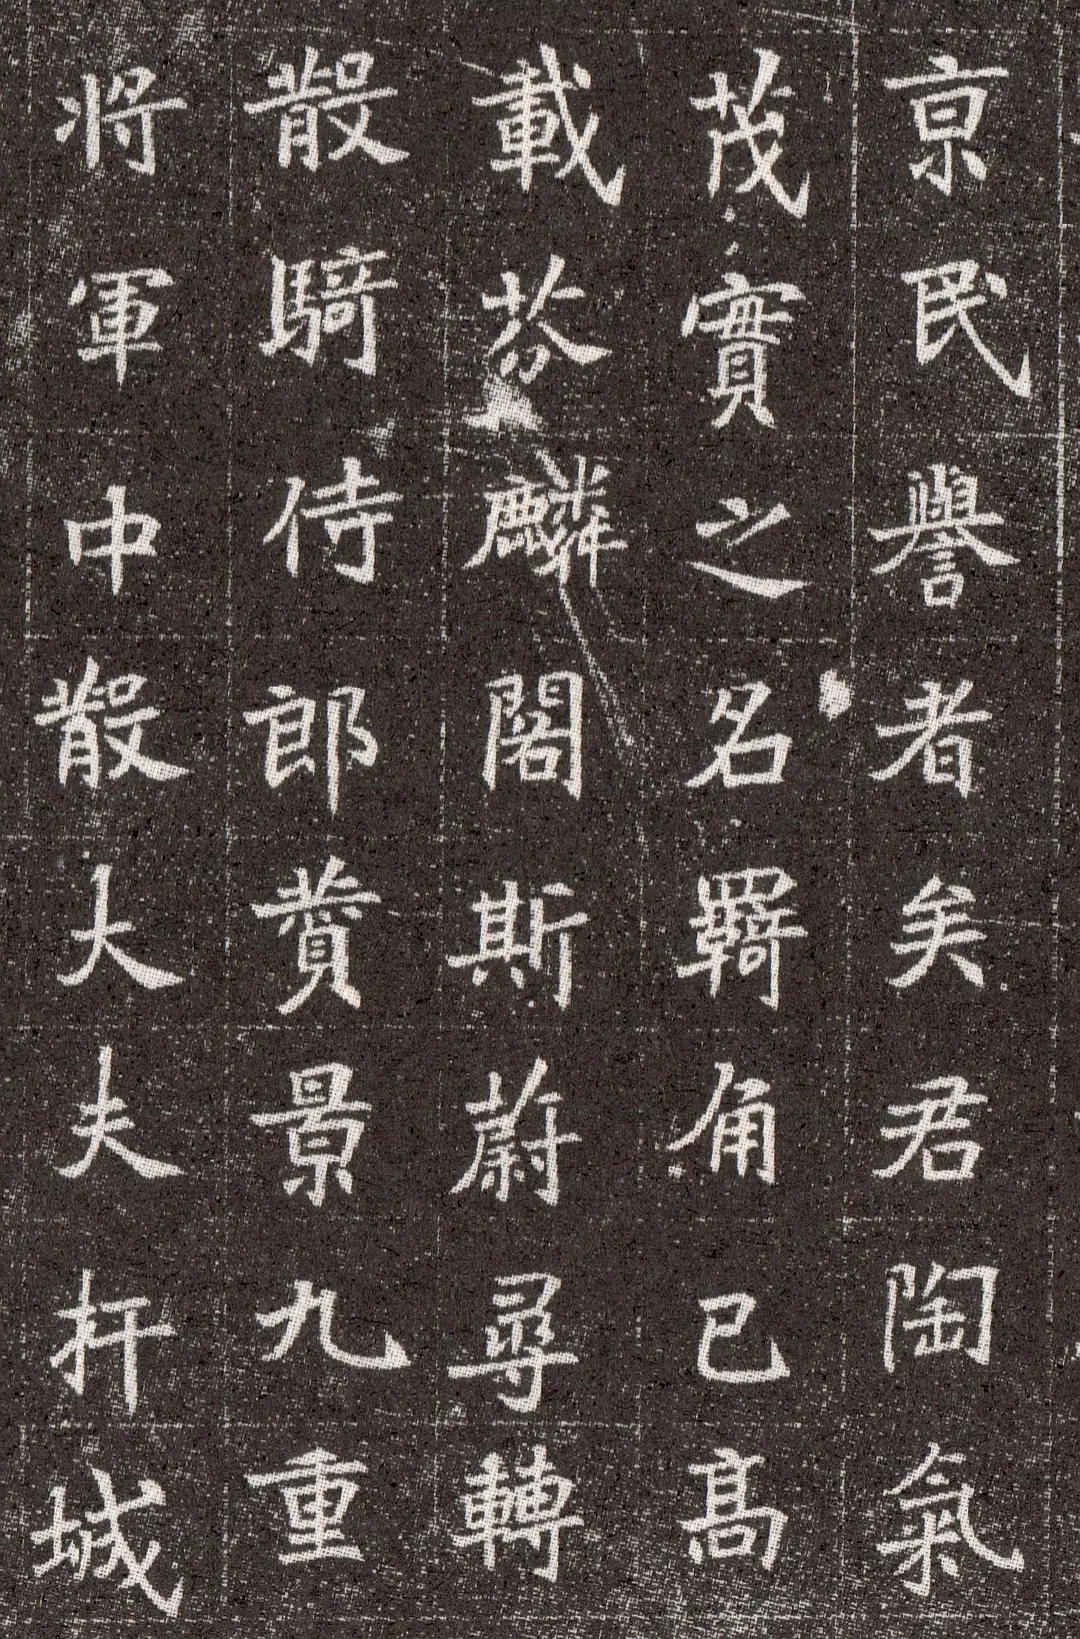 京民譽者矣君陶氣
茂實之名羇角已高
載芬麟閣斯蔚尋轉
散騎侍郎贊景九重
將軍中散大夫扞城